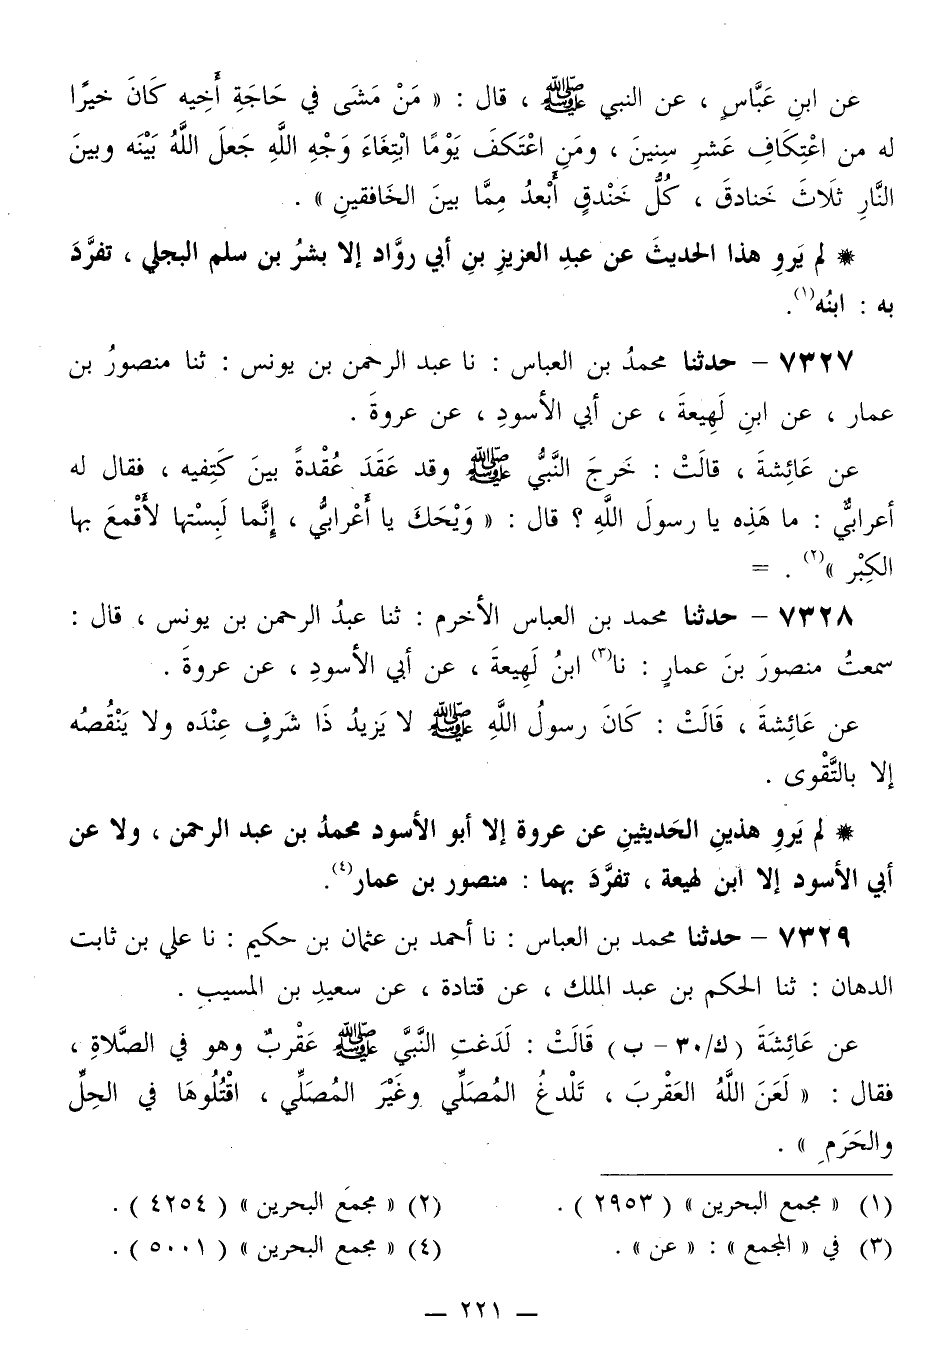 عن ابنِ عَبَّاسٍ ، عن النبي ﷺ ، قال : « مَنْ مَشَى في حَاجَةِ أَخِيه كَانَ خيرًا
له من اعْتِكَافِ عَشرِ سِنينَ ، ومَنِ اعْتَكفَ يَوْمًا ابْتِغَاءَ وَجْهِ اللَّهِ جَعلَ اللَّهُ بَيْنَه وبينَ
النَّارِ ثلَاثَ خَنادقَ ، كُلُّ خَنْدقٍ أَبْعدُ مِمَّا بينَ الخَافقينِ » .
* لم يَروِ هذا الحديثَ عن عبدِ العزيزِ بنِ أبي روَّاد إلا بشرُ بن سلم البجلي ، تفرَّدَ
به : ابنُه(١).
٧٣٢٧ – حدثنا محمدُ بن العباس : نا عبد الرحمن بن يونس : ثنا منصورُ بن
عمار ، عن ابنِ لَهِيعةَ ، عن أبي الأسودِ ، عن عروةَ .
عن عَائِشةَ ، قالَتْ : خَرجَ النَّبيُّ ﷺ وقد عَقَدَ عُقْدةً بينَ كَتِفيه ، فقال له
أعرابيٌّ : ما هَذِه يا رسولَ اللَّهِ ؟ قال : « وَيْحَكَ يا أَعْرابيُّ ، إِنَّما لَبِسْتها لأَقْمعَ بها
الكِبْر »(٢) . =
٧٣٢٨ – حدثنا محمد بن العباس الأخرم : ثنا عبدُ الرحمن بن يونس ، قال :
سمعتُ منصورَ بنَ عمارٍ : نا(٣) ابنُ لَهِيعةَ ، عن أبي الأسودِ ، عن عروةَ .
عن عَائِشةَ ، قَالَتْ : كَانَ رسولُ اللَّهِ ﷺ لا يَزيدُ ذَا شَرفٍ عِنْدَه ولا يَنْقُصُه
إلا بالتَّقْوى .
* لم يَروِ هذينِ الحَديثينِ عن عروة إلا أبو الأسود محمدُ بن عبد الرحمن ، ولا عن
أبي الأسود إلا ابن لهيعة ، تفرَّدَ بهما : منصور بن عمار(٤).
٧٣٢٩ – حدثنا محمد بن العباس : نا أحمد بن عثمان بن حكيم : نا علي بن ثابت
الدهان : ثنا الحكم بن عبد الملك ، عن قتادة ، عن سعيدِ بن المسيبِ .
عن عَائِشَةَ ( ك/٣٠ – ب ) قَالَتْ : لَدَغتِ النَّبيَّ ﷺ عَقْربٌ وهو في الصَّلاةِ ،
فقال : « لَعَنَ اللَّهُ العَقْربَ ، تَلْدغُ المُصَلِّي وغَيْرَ المُصَلِّي ، اقْتُلُوهَا في الحِلِّ
والحَرَمِ » .
(١) « مجمع البحرين » ( ٢٩٥٣ ) .
(٢) « مجمع البحرين » ( ٤٢٥٤ ) .
(٣) في « المجمع » : « عن » .
(٤) « مجمع البحرين » ( ٥٠٠١ ) .
– ٢٢١ –